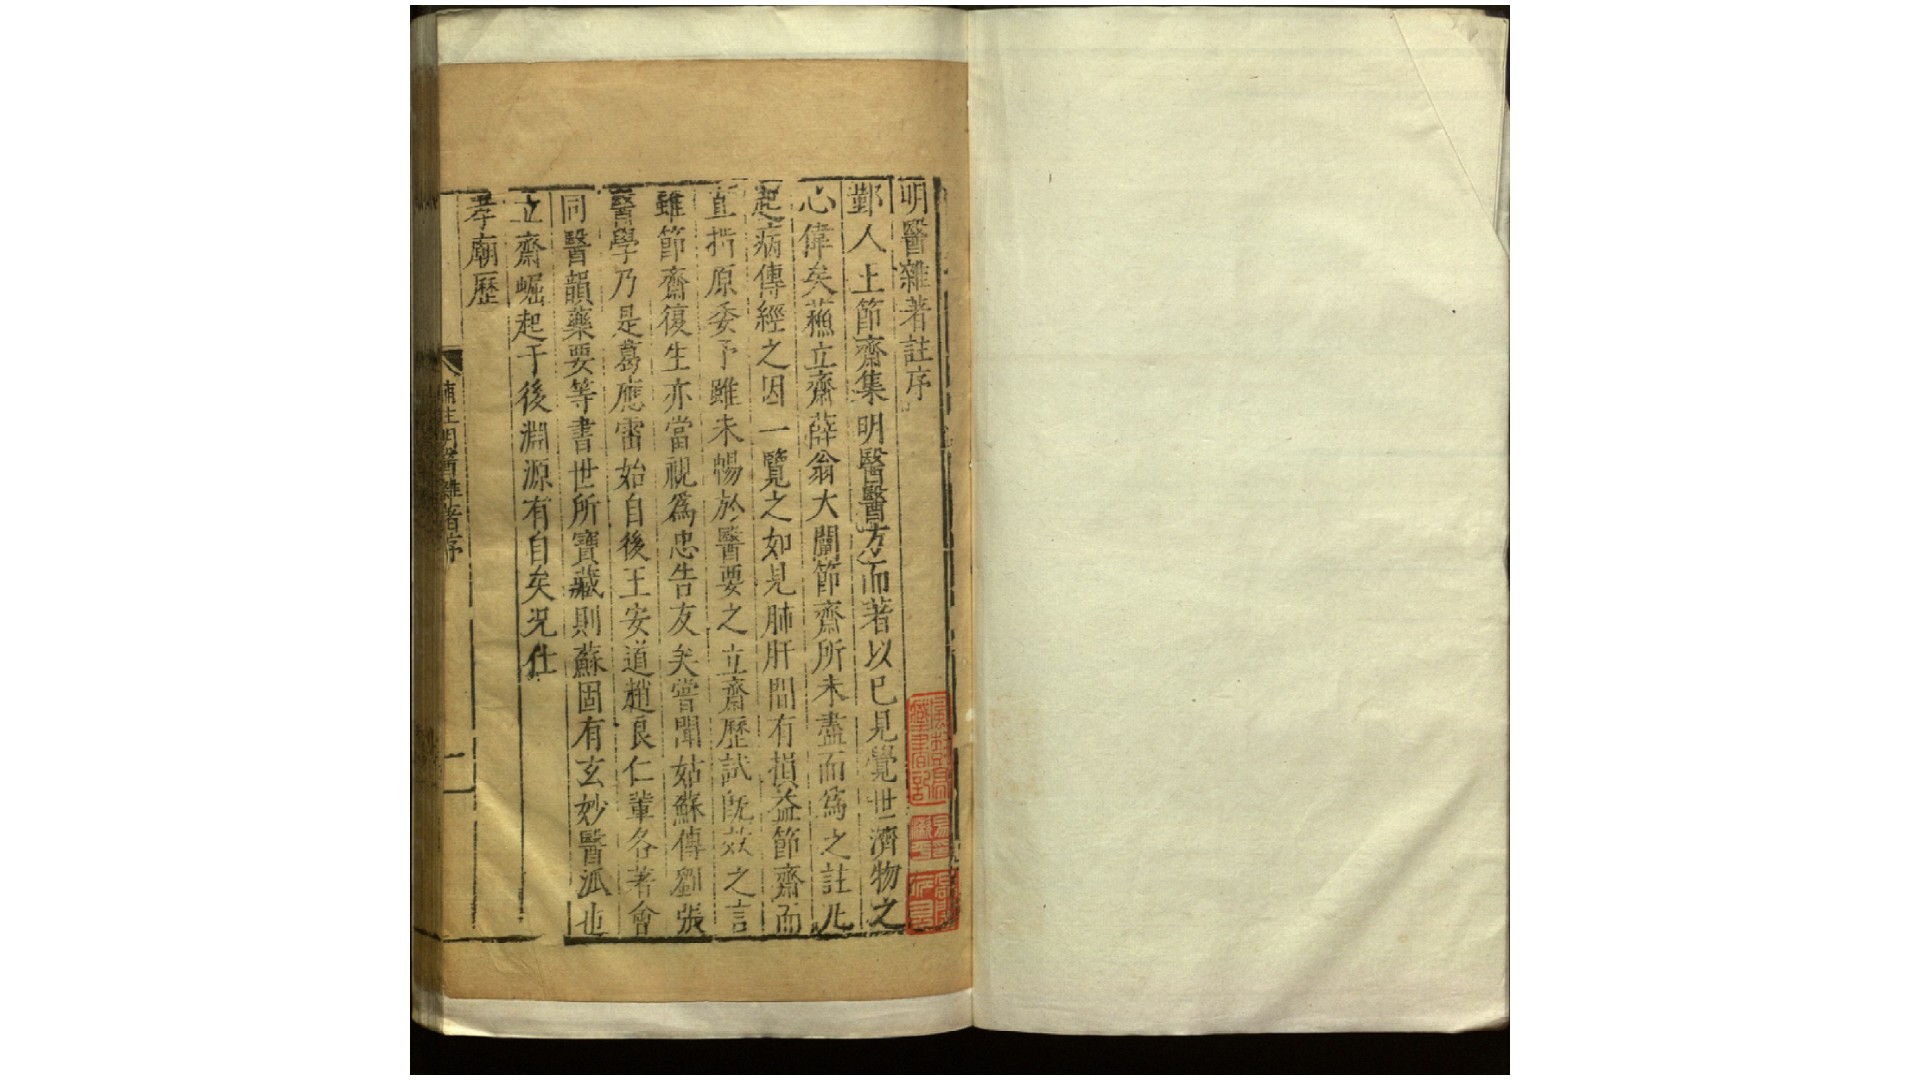 明醫雜著註序
鄞人王節齋集明醫醫方而著以已見覺世濟物之
心偉矣蘓立齋薛翁大闡節齋所未盡而爲之註凡
起病傳經之因一覽之如見肺肝間有損益節齋而
直指原委予雖未暢於醫要之立齋歷試旣效之言
雖節齋復生亦當視爲忠告友矣嘗聞姑蘇傳劉張
醫學乃是葛應雷始自後王安道趙良仁輩各著會
同醫韻藥要等書世所寶藏則蘇固有玄妙醫派也
立齋崛起于後淵源有自矣況仕
孝廟歷
補註明醫雜著序
一